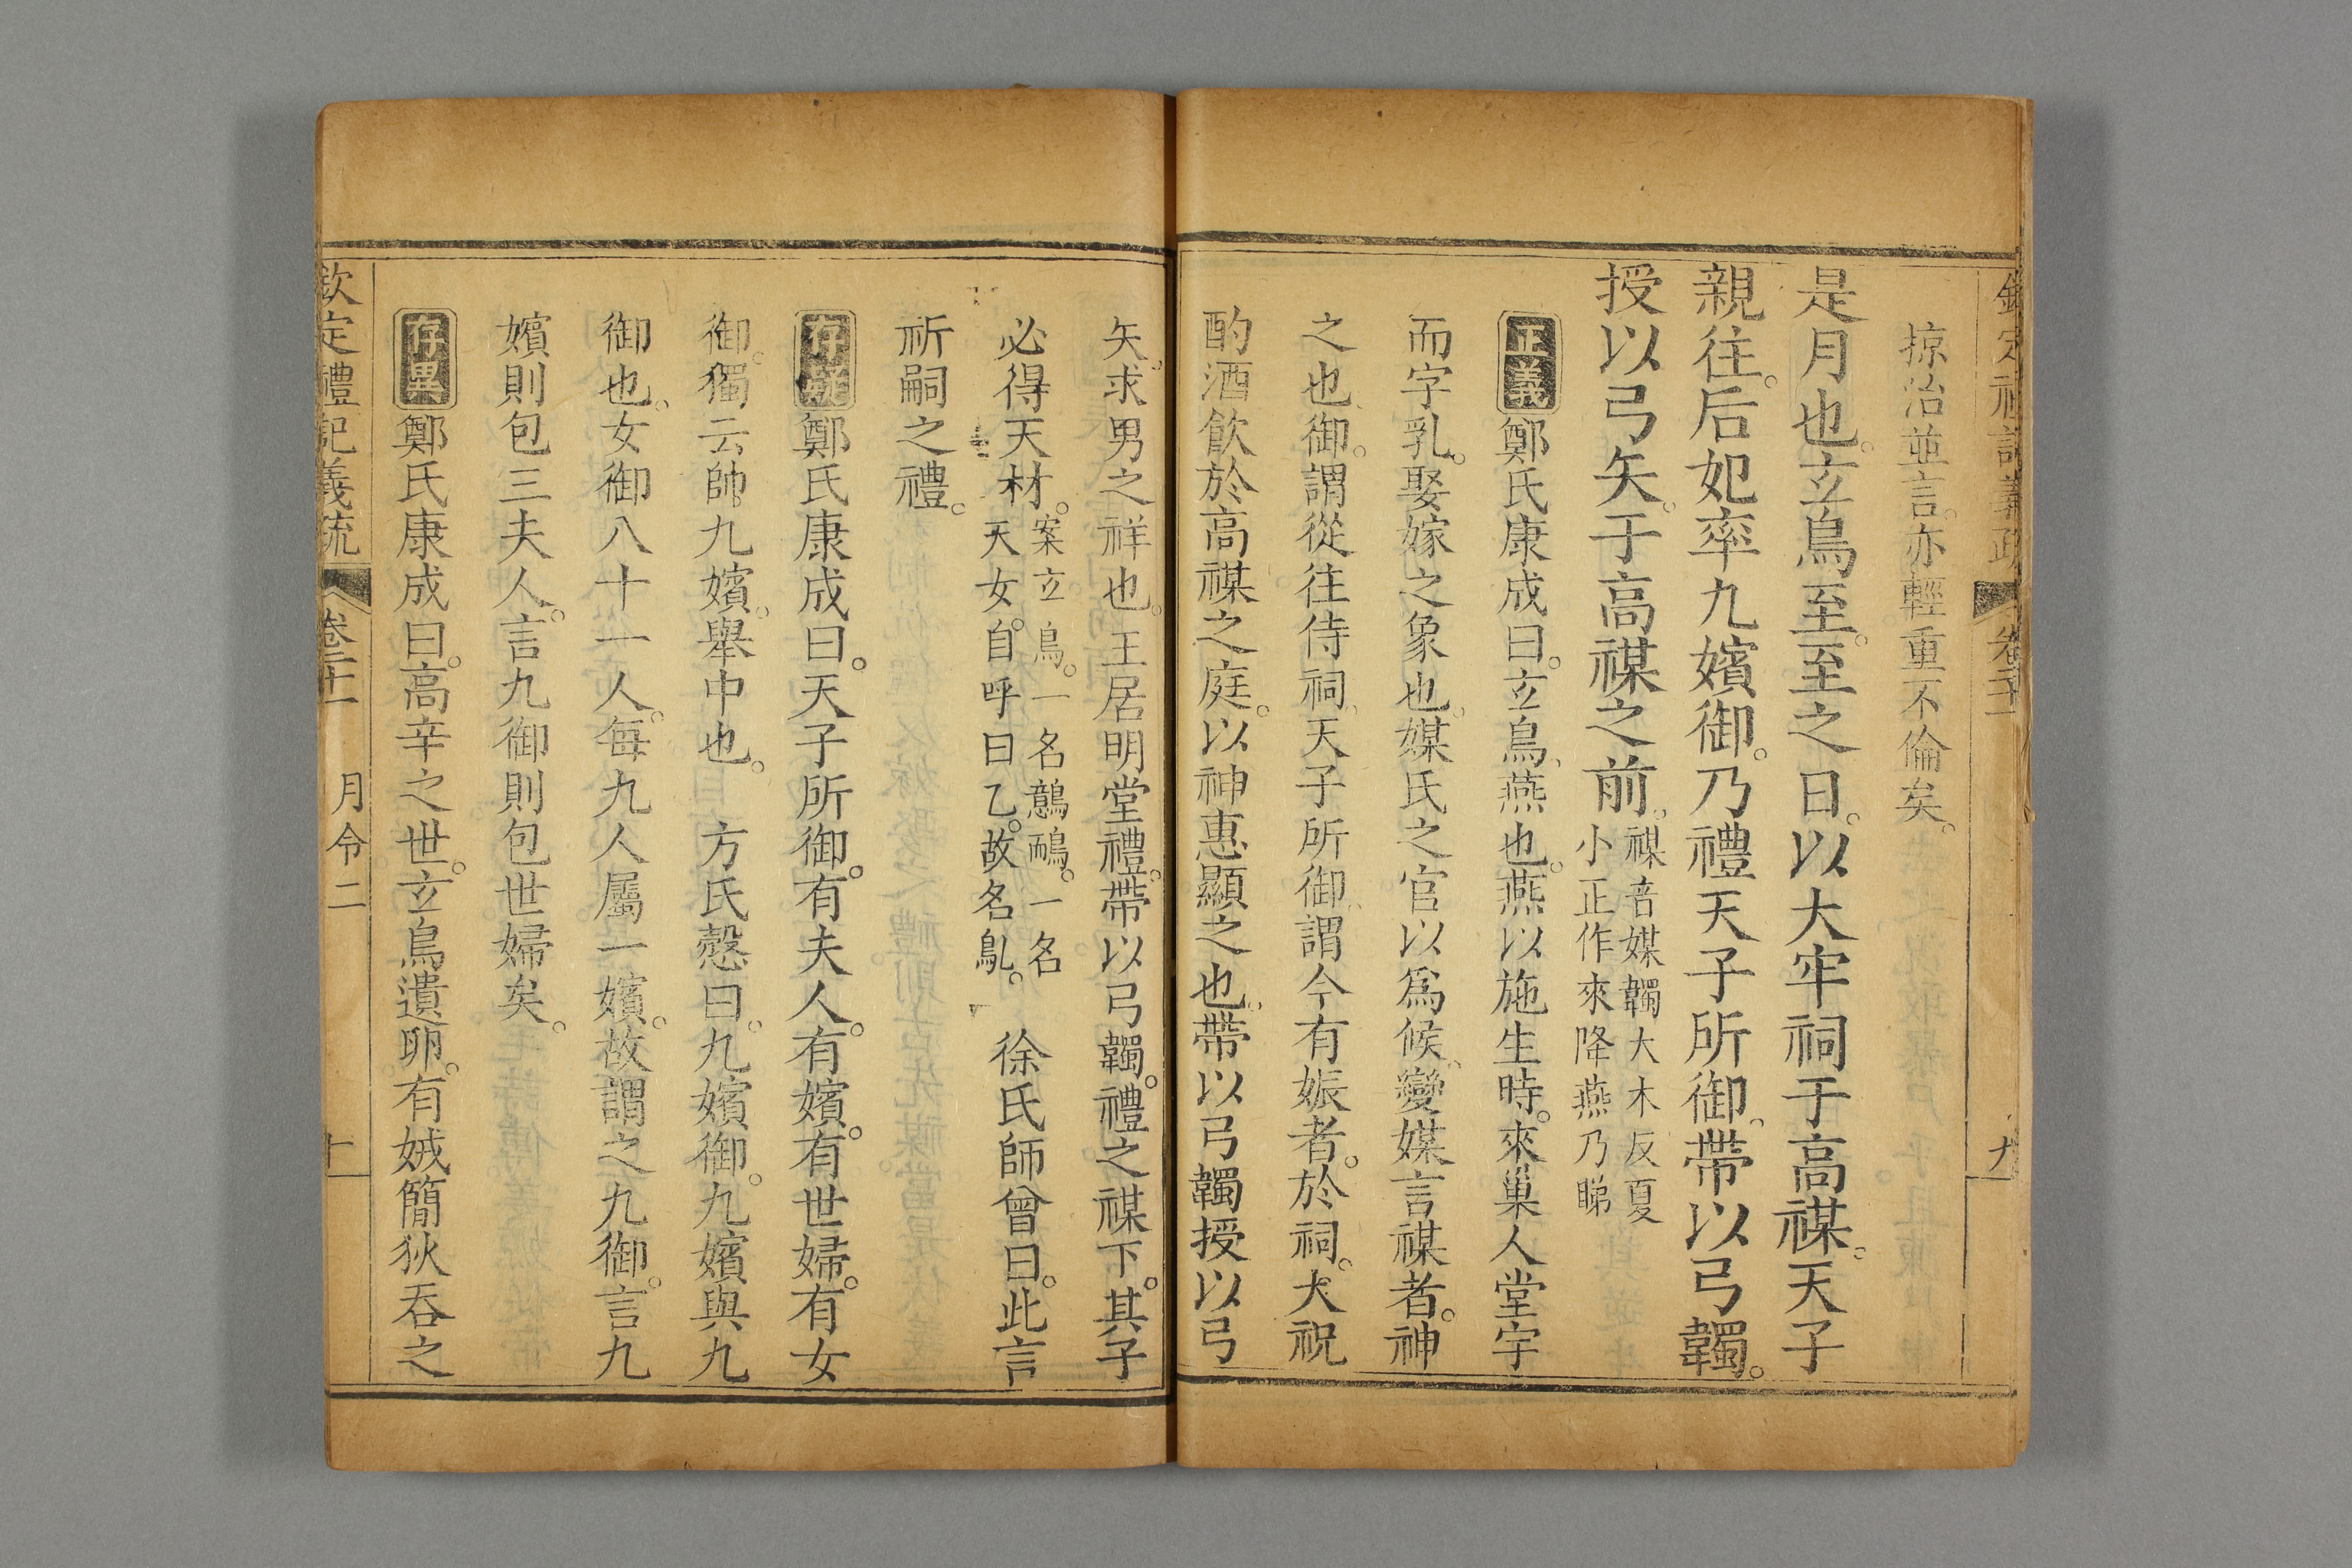 掠治並言亦輕重不倫矣。
是月也。玄鳥至。至之日。以大牢祠于高禖。天子
親往。后妃率九嬪御。乃禮天子所御、帶以弓韣。
授以弓矢。于高禖之前。
禖音媒韣大木反夏
小正作來降燕乃睇
正義鄭氏康成曰。玄鳥、燕也。燕以施生時。來巢人堂宇
而孚乳。娶嫁之象也。媒氏之官以為候、變媒言禖者。神
之也、御。謂從往侍祠、天子所御、謂今有娠者。於祠。大祝
酌酒飲於高禖之庭。以神惠顯之也。帶以弓韣授以弓
矢。求男之祥也。王居明堂禮。帶以弓韣。禮之禖下。其子
必得天材。
案玄鳥。一名鷾鴯。一名
天女。自呼曰乙。故名鳦。
徐氏師曾曰。此言
祈嗣之禮。
存疑鄭氏康成曰。天子所御。有夫人。有嬪。有世婦。有女
御。獨云帥九嬪。舉中也。 方氏愨曰。九嬪御。九嬪與九
御也。女御八十一人。每九人屬一嬪。故謂之九御。言九
嬪則包三夫人。言九御則包世婦矣。
存異鄭氏康成曰。高辛之世。玄鳥遺卵。有娀簡狄吞之
欽定禮記義疏 卷二十一 月令二 十